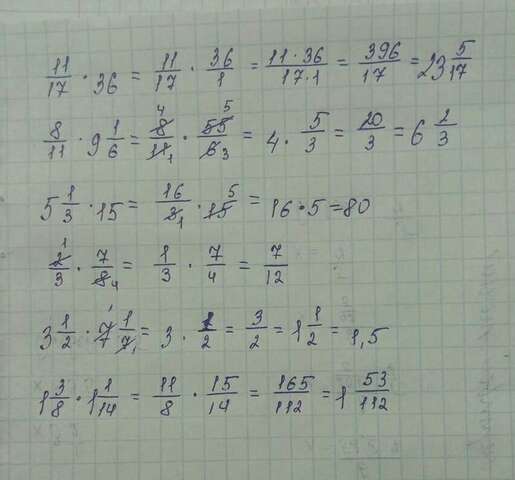 11/17 · 36 = 11/17 · 36/1 = 11·36/17·1 = 396/17 = 23 5/17
8/11 · 9 1/6 = 8 4/11 1 · 55 5/6 3 = 4 · 5/3 = 20/3 = 6 2/3
5 1/3 · 15 = 16/3 1 · 15 5 = 16 · 5 = 80
2 1/3 · 7/8 4 = 1/3 · 7/4 = 7/12
3 1/2 · 7 1 1/7 1 = 3 · 1/2 = 3/2 = 1 1/2 = 1,5
1 3/8 · 1 1/14 = 11/8 · 15/14 = 165/112 = 1 53/112